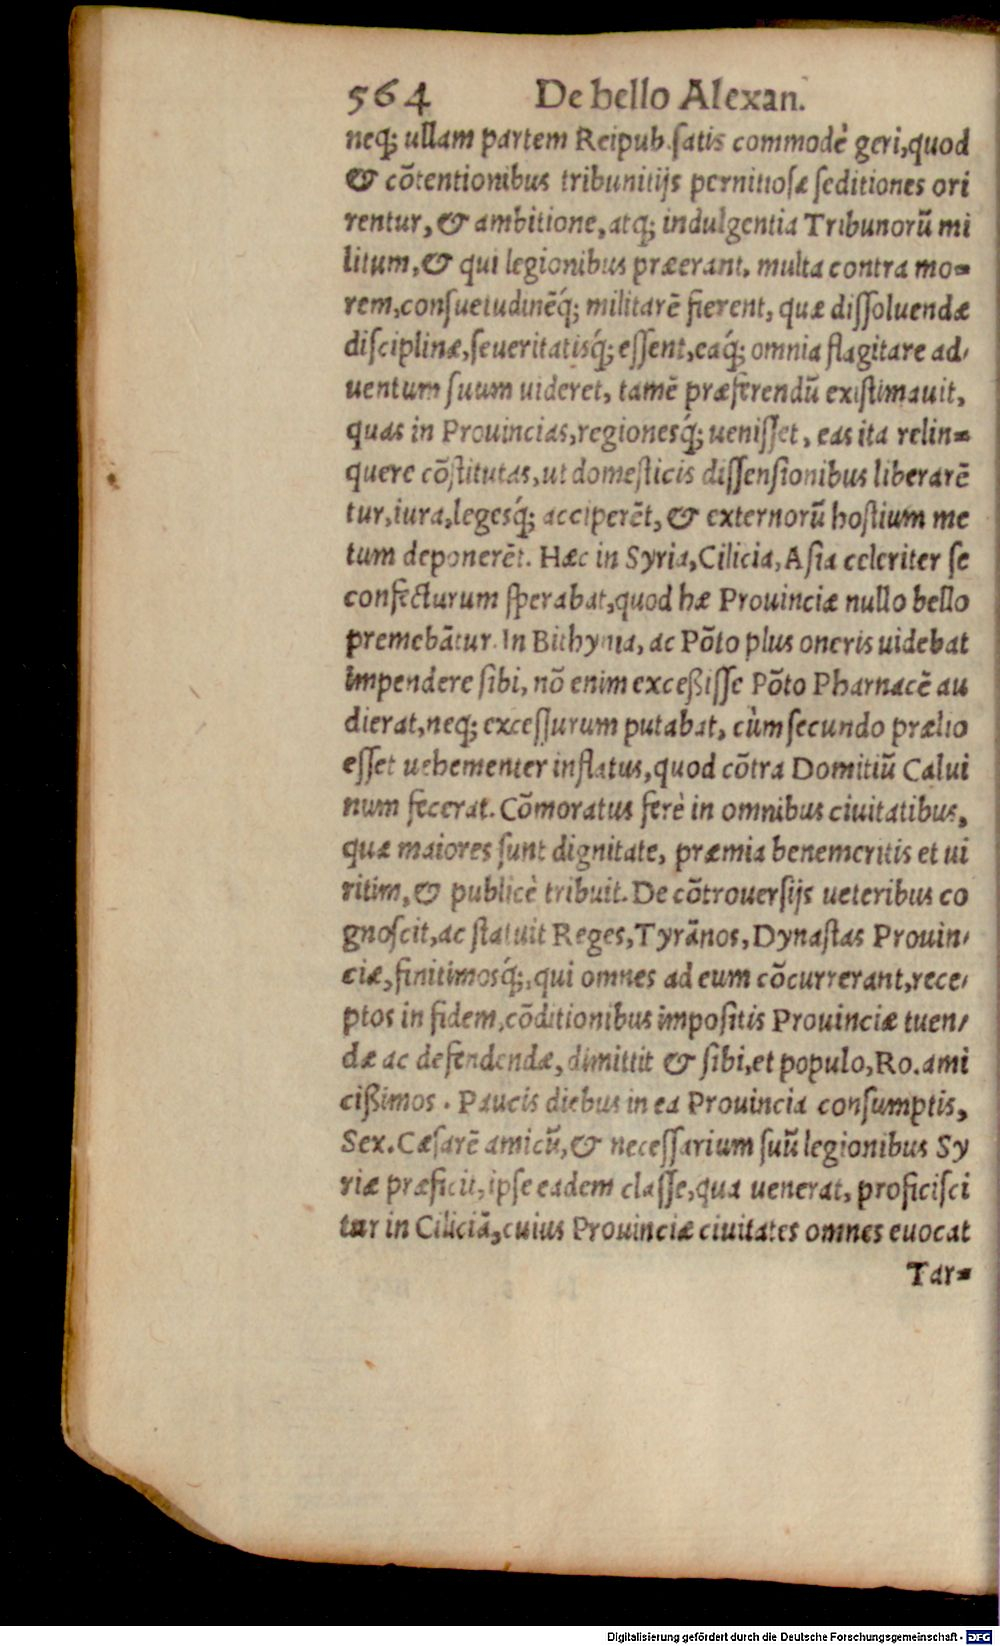 564 De bello Alexan.
neq; ullam partem Reipub. ſatis commodè geri, quod
& cōtentionibus tribunitijs pernitioſæ ſeditiones ori
rentur, & ambitione, atq; indulgentia Tribunorū mi
litum, & qui legionibus præerant, multa contra mo=
rem, conſuetudinēq́; militarē fierent, quæ diſſoluendæ
diſciplinæ, ſeueritatisq́; eſſent, eaq́; omnia flagitare ad/
uentum ſuum uideret, tamē præferendū exiſtimauit,
quas in Prouincias, regionesq́; ueniſſet, eas ita relin=
quere cōſtitutas, ut domeſticis diſſenſionibus liberarē
tur, iura, legesq́; acciperēt, & externorū hoſtium me
tum deponerēt. Hæc in Syria, Cilicia, Aſia celeriter ſe
confecturum ſperabat, quod hæ Prouinciæ nullo bello
premebātur. In Bithynia, ac Pōto plus oneris uidebat
impendere ſibi, nō enim exceßiſſe Pōto Pharnacē au
dierat, neq; exceſſurum putabat, cùm ſecundo prælio
eſſet uehementer inflatus, quod cōtra Domitiū Calui
num fecerat. Cōmoratus ferè in omnibus ciuitatibus,
quæ maiores ſunt dignitate, præmia benemeritis et ui
ritim, & publicè tribuit. De cōtrouerſijs ueteribus co
gnoſcit, ac ſtatuit Reges, Tyrānos, Dynaſtas Prouin/
ciæ, finitimosq́;, qui omnes ad eum cōcurrerant, rece/
ptos in fidem, cōditionibus impoſitis Prouinciæ tuen/
dæ ac defendendæ, dimittit & ſibi, et populo, Ro. ami
cißimos. Paucis diebus in ea Prouincia conſumptis,
Sex. Cæſarē amicū, & neceſſarium ſuū legionibus Sy
riæ præficit, ipſe eadem claſſe, qua uenerat, proficiſci
tur in Ciliciā, cuius Prouinciæ ciuitates omnes euocat
Tar=
Digitalisierung gefördert durch die Deutsche Forschungsgemeinschaft - DFG